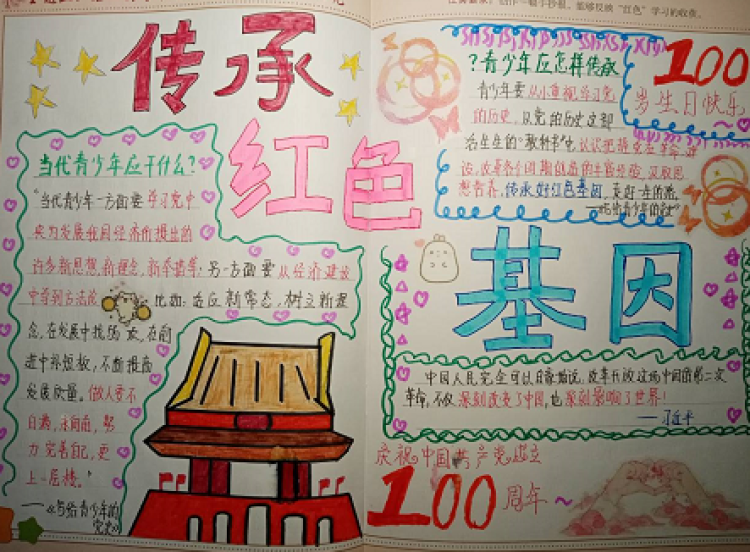 传承
红色
基因
当代青少年应干什么?
"当代青少年一方面要学习党中
央为发展我国经济所提出的
许多新思想,新理念,新举措等;另一方面要从经济建设
中寻到方法论
比如:适应新常态,树立新理
念,在发展中找
在前
进中补短板,不断提高
发展质量。做人要不
自满,永向前,努
力完善自己,更
上一层楼。"
——《写给青少年的
党史》
?青少年应怎样传承
青少年要从小重视学习党
的历史,从党的历史这部
活生生的"教科书"中认识把握党在革命、建
设、改革各个时期创造的丰富经验,汲取思
想营养,传承好红色基因
100
岁生日快乐~
中国人民完全可以自豪地说,改革开放这场中国的第二次
革命,不仅深刻改变了中国,也深刻影响了世界!
——习近平
庆祝中国共产党成立
100周年~